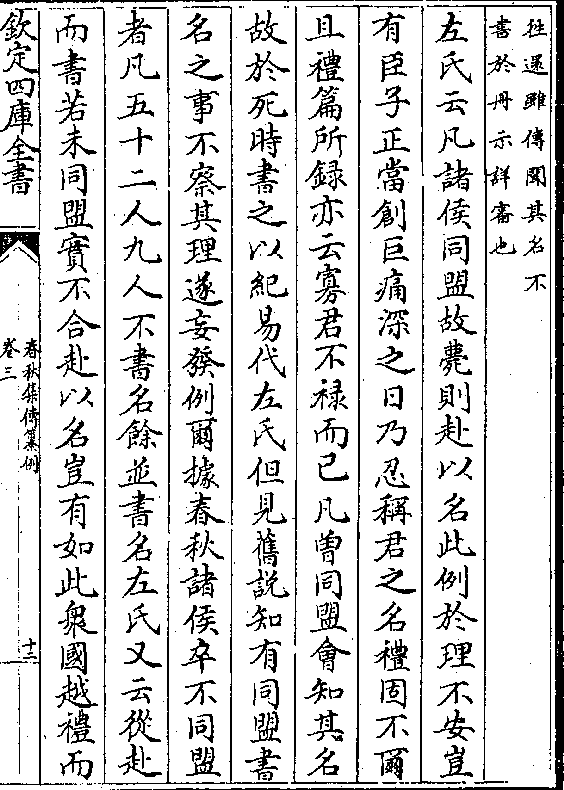 往還雖傳聞其名不
書於冊示詳審也
左氏云凡諸侯同盟故薨則赴以名此例於理不安豈
有臣子正當創巨痛深之日乃忍稱君之名禮固不爾
且禮篇所録亦云寡君不禄而已凡曽同盟會知其名
故於死時書之以紀易代左氏但見舊說知有同盟書
名之事不察其理遂妄發例爾據春秋諸侯卒不同盟
者凡五十二人九人不書名餘並書名左氏又云從赴
而書若未同盟實不合赴以名豈有如此衆國越禮而
欽定四庫全書
春秋集傳纂例
卷三
十三